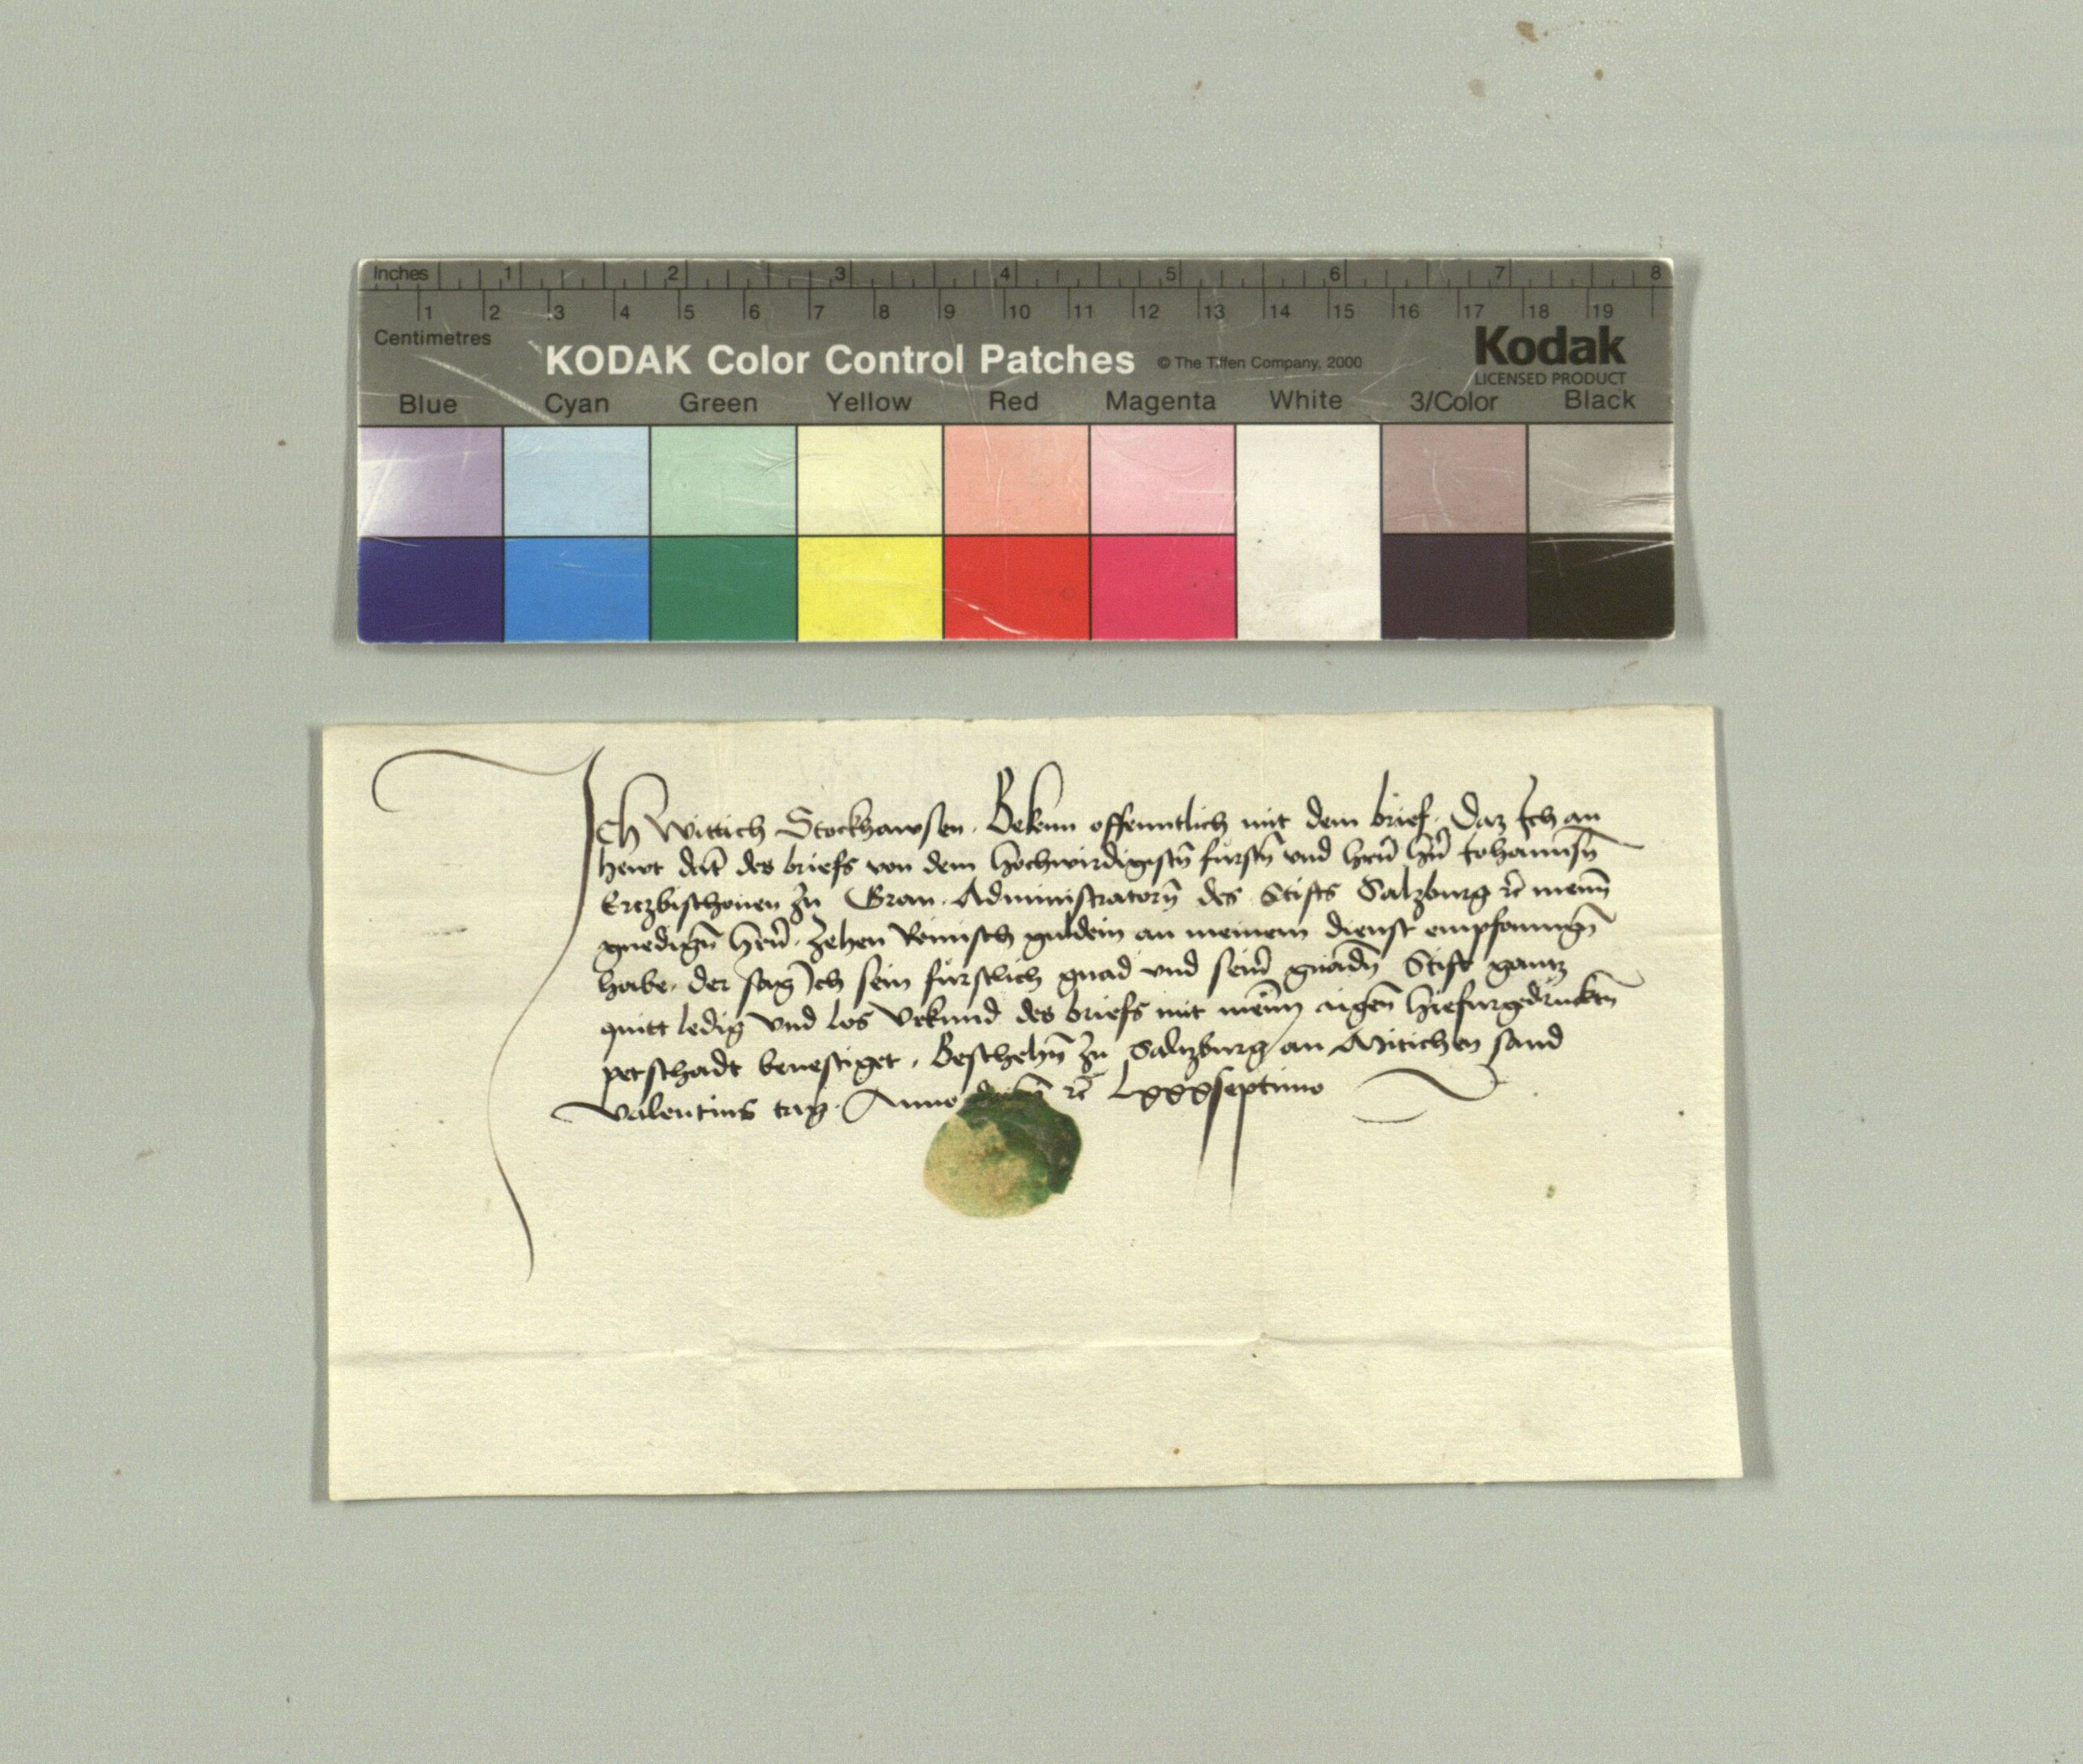 Inches 1 2 3 4 5 6 7 8
1 2 3 4 5 6 7 8 9 10 11 12 13 14 15 16 17 18 19
Centimetres
KODAK Color Control Patches © The Tiffen Company, 2000 Kodak
LICENSED PRODUCT
Blue Cyan Green Yellow Red Magenta White 3/Color Black
Ich Wittich Stockhawsen. Bekenn offenntlich mit dem brief. Daz Ich an
hewt dat̄ des briefs von dem hochwirdigistn̄ fürstn̄ vnd hrn̄ hn̄ Johannsn̄
Erczbischouen zu Gran. Administratorn̄ des Stifts Salzburg rc̄ meinn̄
gnedign̄ hrn̄. zehen Reinisch guldein an meinem dienst empfanngn̄
habe. der sag Ich sein fürstlich gnad vnd seinr̄ gnadn̄ Stift gantz
quitt ledig vnd los Vrkund des briefs mit meinn̄ aigen̄ hiefurgedrucktn̄
petschadt beuestiget. Beschehn̄ zu Saltzburg an Mitichen sand
Valentins tag. Anno rc̄ Lxxxseptimo